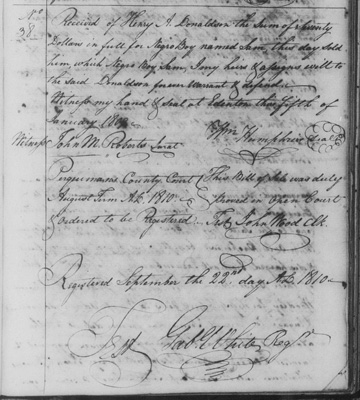 No
38
Received of Henry A. Donaldson the Sum of Seventy
Dollars in full for Negro Boy named Sam, this day Sold
him, which Negro Boy Sam, I my heirs & assigns will to
the said Donaldson forever Warrant & defend
Witness my hand & Seal at Edenton this fifth of
January
Wm Humphries Seal
Witness John M. Roberts Jurat
Perquimans County Court This Bill of Sale was duly
August Term AD. 1810 proved in Open Court
& ordered to be Registered Test John Wood Clk
Registered September the 22nd day AD. 1810
Test Gabl. White Regr